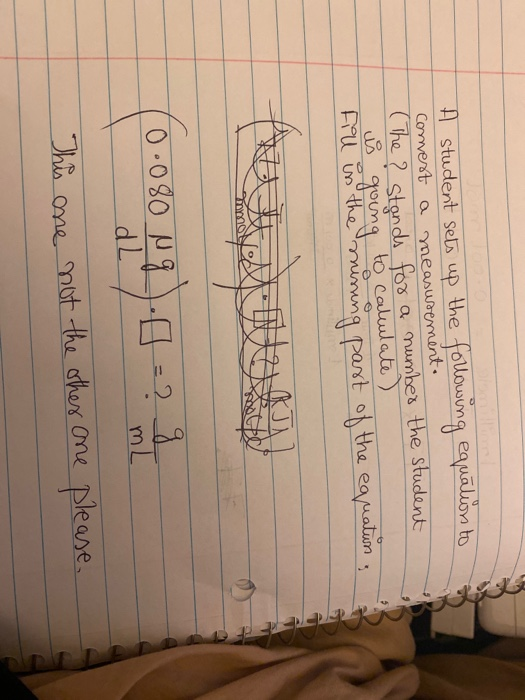 A student sets up the following equation to
convert a measurement.
(The ? stands for a number the student
is going to calculate)
Fill in the missing part of the equation:
(0.080 μg/dL) · □ = ? g/mL
This one not the other one please.